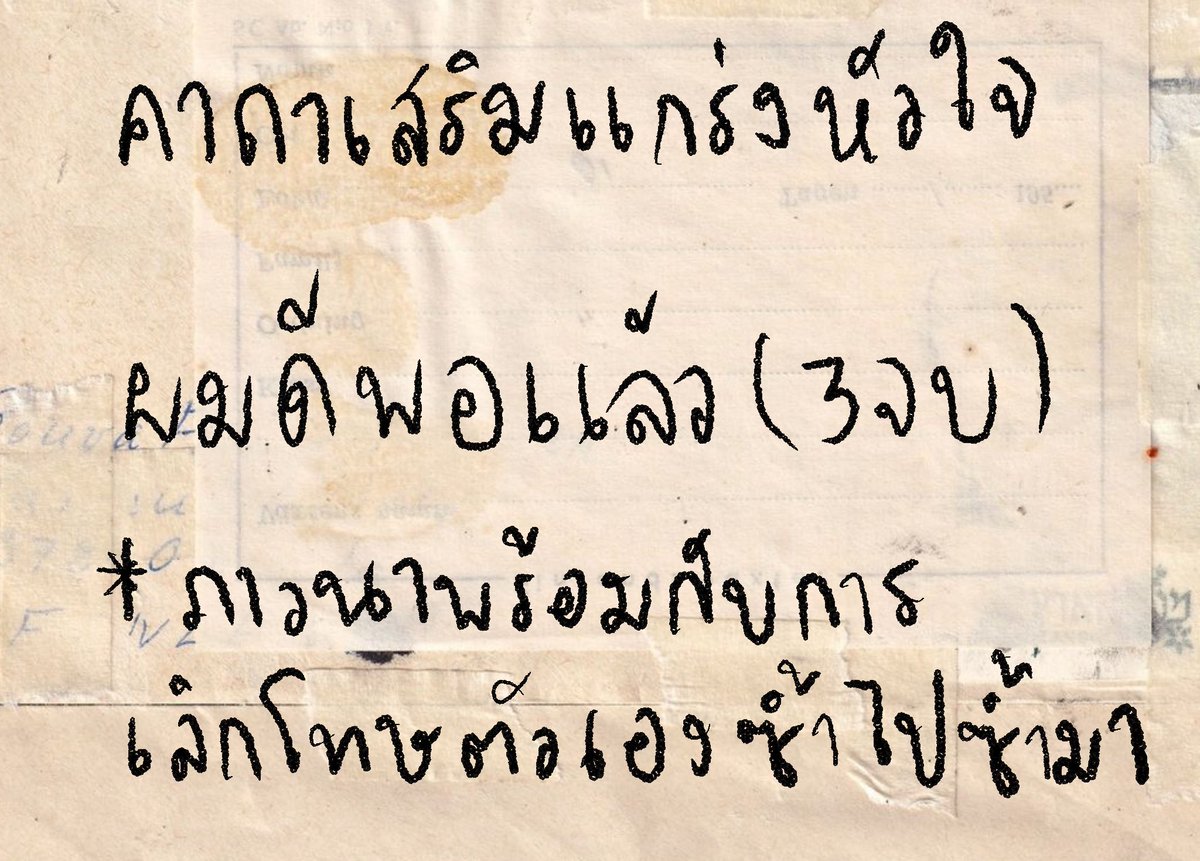 คาถาเสริมแกร่งหัวใจ
ผมดีพอแล้ว (3จบ)
* ภาวนาพร้อมกับการ
เลิกโทษตัวเองซ้ำไปซ้ำมา